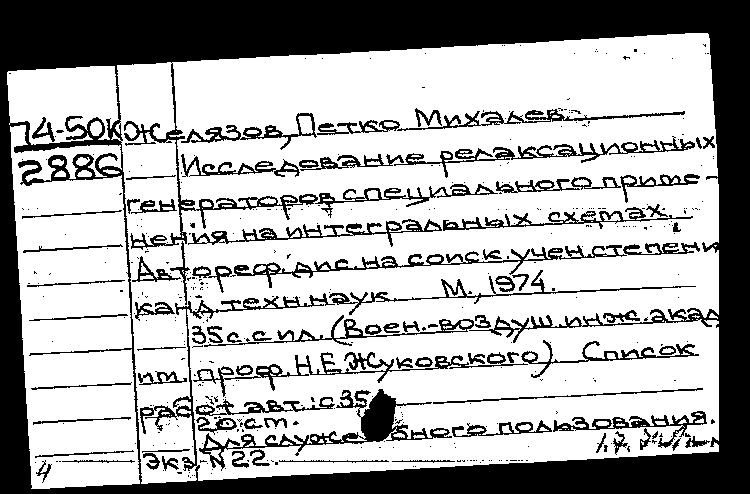 74-50К Желязов, Петко Михалев.
2886 Исследование релаксационных
генераторов специального приме-
нения на интегральных схемах.
Автореф. дис. на соиск. учен. степени
канд. техн. наук. М., 1974.
35 с. с ил. (Воен.-воздуш. инж. акад
им. проф. Н.Е. Жуковского) Список
работ авт.: с. 35
20 ст.
Для служебного пользования.
Экз. N 22.
4